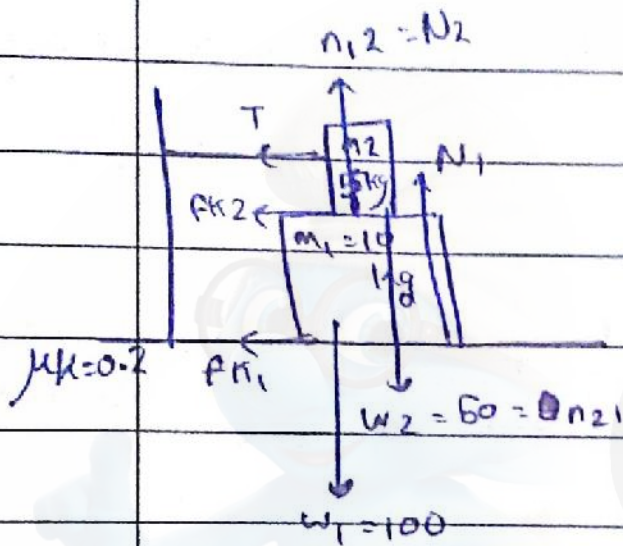 n,2 = N2
T
N1
fK2
m1 = 10
kg
μK=0.2
fK1
W2 = 50 = n21
W1 = 100